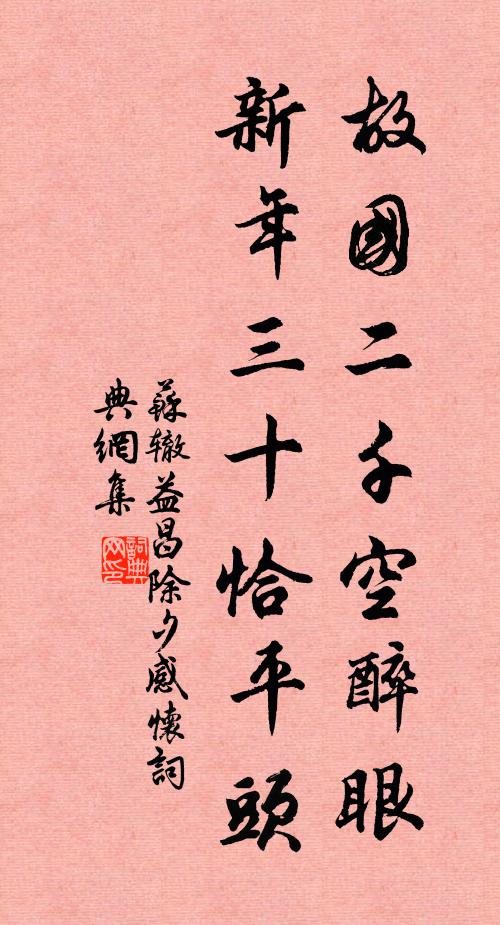 故國二千空醉眼
新年三十恰平頭
蘇辙益昌除夕感懷詞
典網集
詞典
网印